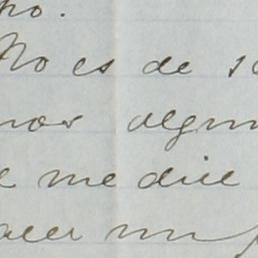 no.
No es de
nos algun
me dice
acer un